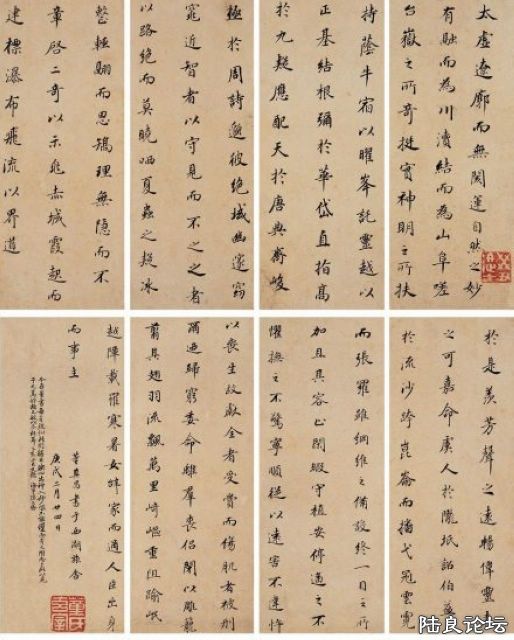 太虛遼廓而無閡運自然之妙
有融而為川瀆結而為山阜嗟
台嶽之所奇挺實神明之所扶
持蔭牛宿以曜峯託靈越以
正基結根彌於華岱直指高
於九疑應配天於唐典齊峻
極於周詩邈彼絕域幽邃窈
窕近智者以守見而不之之者
以路絕而莫曉哂夏蟲之疑冰
整輕翮而思矯理無隱而不
章啓二奇以示兆赤城霞起而
建標瀑布飛流以界道
於是羨芳聲之遠暢偉靈表
之可嘉命虞人於隴坻詔伯益
於流沙跨崑崙而播弋冠雲霓
而張羅雖綱維之備設終一目之所
加且其容止閑暇守植安停逼之不
懼撫之不驚寧順從以遠害不違忤
以喪生故獻全者受賞而傷肌者被刑
爾迺歸窮委命離羣喪侶閉以雕籠
翦其翅羽流飄萬里崎嶇重阻踰岷
越障載罹寒暑女辭家而適人臣出身
而事主
董其昌書于西湖旅舍
庚戌二月廿四日
陆良论坛